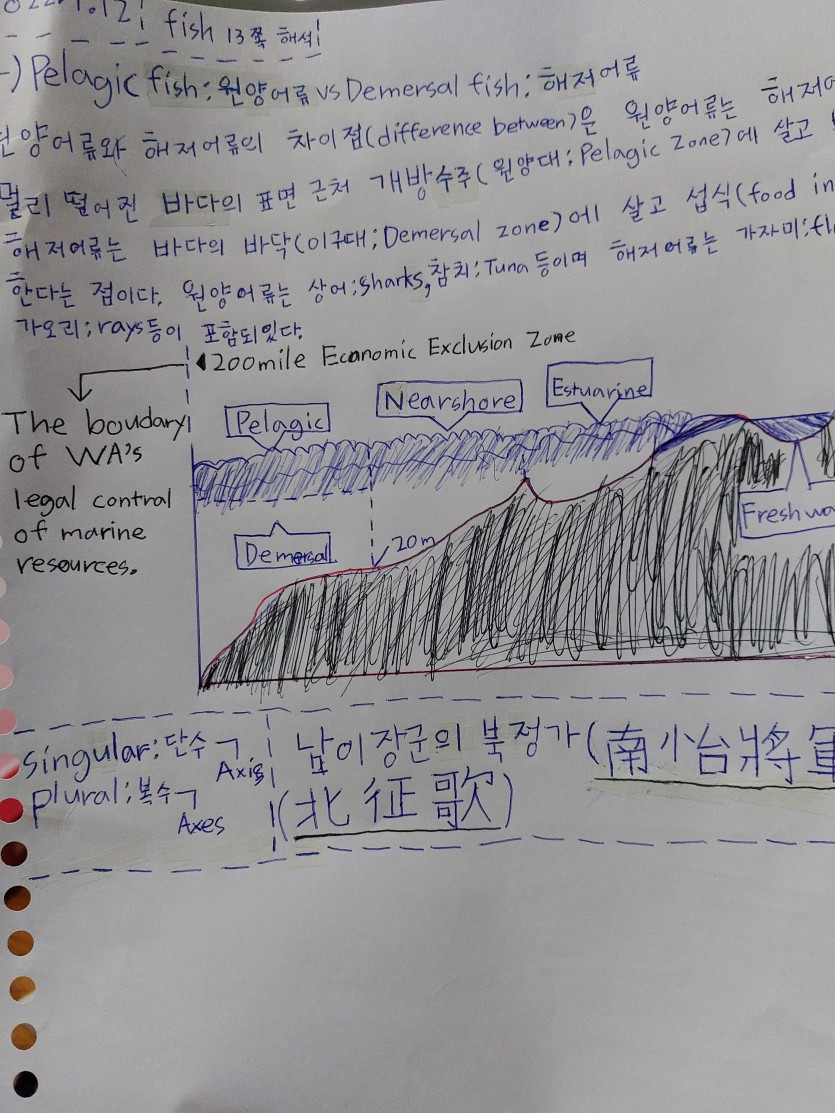 fish 13쪽 해석!
Pelagic fish: 원양어류 vs Demersal fish; 해저어류
원양어류와 해저어류의 차이점(difference between)은 원양어류는 해저어
멀리 떨어진 바다의 표면 근처 개방수주(원양대; Pelagic Zone)에 살고
해저어류는 바다의 바닥(이구대; Demersal zone)에 살고 섭식(food in
한다는 점이다. 원양어류는 상어; sharks, 참치; Tuna 등이며 해저어류는 가자미; fl
가오리; rays등이 포함되있다.
200mile Economic Exclusion Zone
The boudary
of WA's
legal control
of marine
resources.
Pelagic
Nearshore
Estuarine
Demersal
20m
Freshwa
singular: 단수ㄱ
Axis
plural; 복수ㄱ
Axes
남이장군의 북정가(南小台將軍
(北征歌)